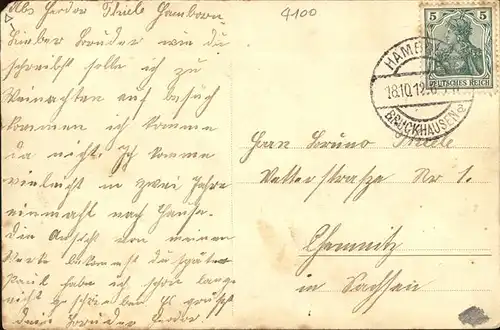 Abs Teodor Thiele Hamborn.
4100
Lieber Bruder wie du
schreibst solle ich zu
Weinachten auf besuch
kommen ich komme
da nicht. Ich komme
vieleicht in zwei Jahre
einmahl nach Hause.
die Ansicht von meinen
bekommst du später
Paul habe ich schon lange
nicht geschrieben Es grüsst
dein Bruder Teodor.
5 5
DEUTSCHES REICH
HAMBORN
18.10.12.
BRUCKHAUSEN
Herrn Bruno Thiele
Vetterstrasze Nr 1.
Chemnitz
in Sachsen